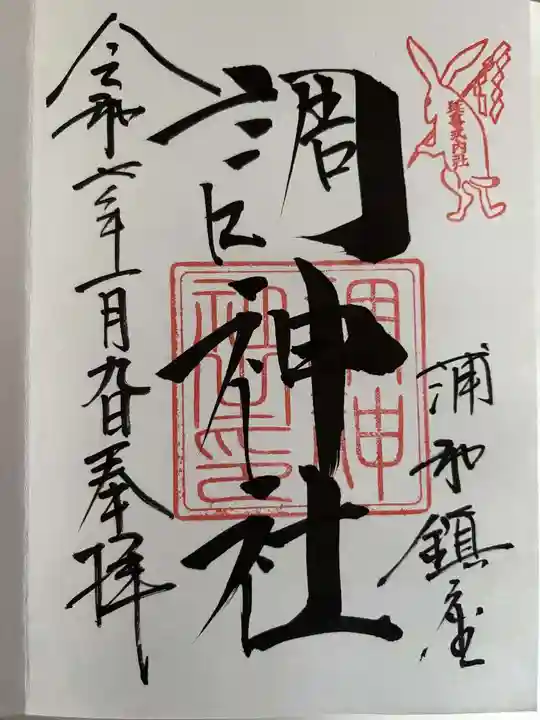 延喜式内社
浦和鎮座
調神社
調神社之印
令和七年一月九日奉拝